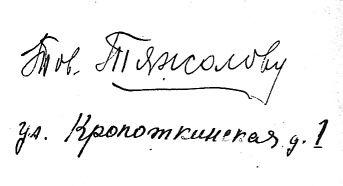 Тов. Тяжолову
ул. Кропоткинская д. 1